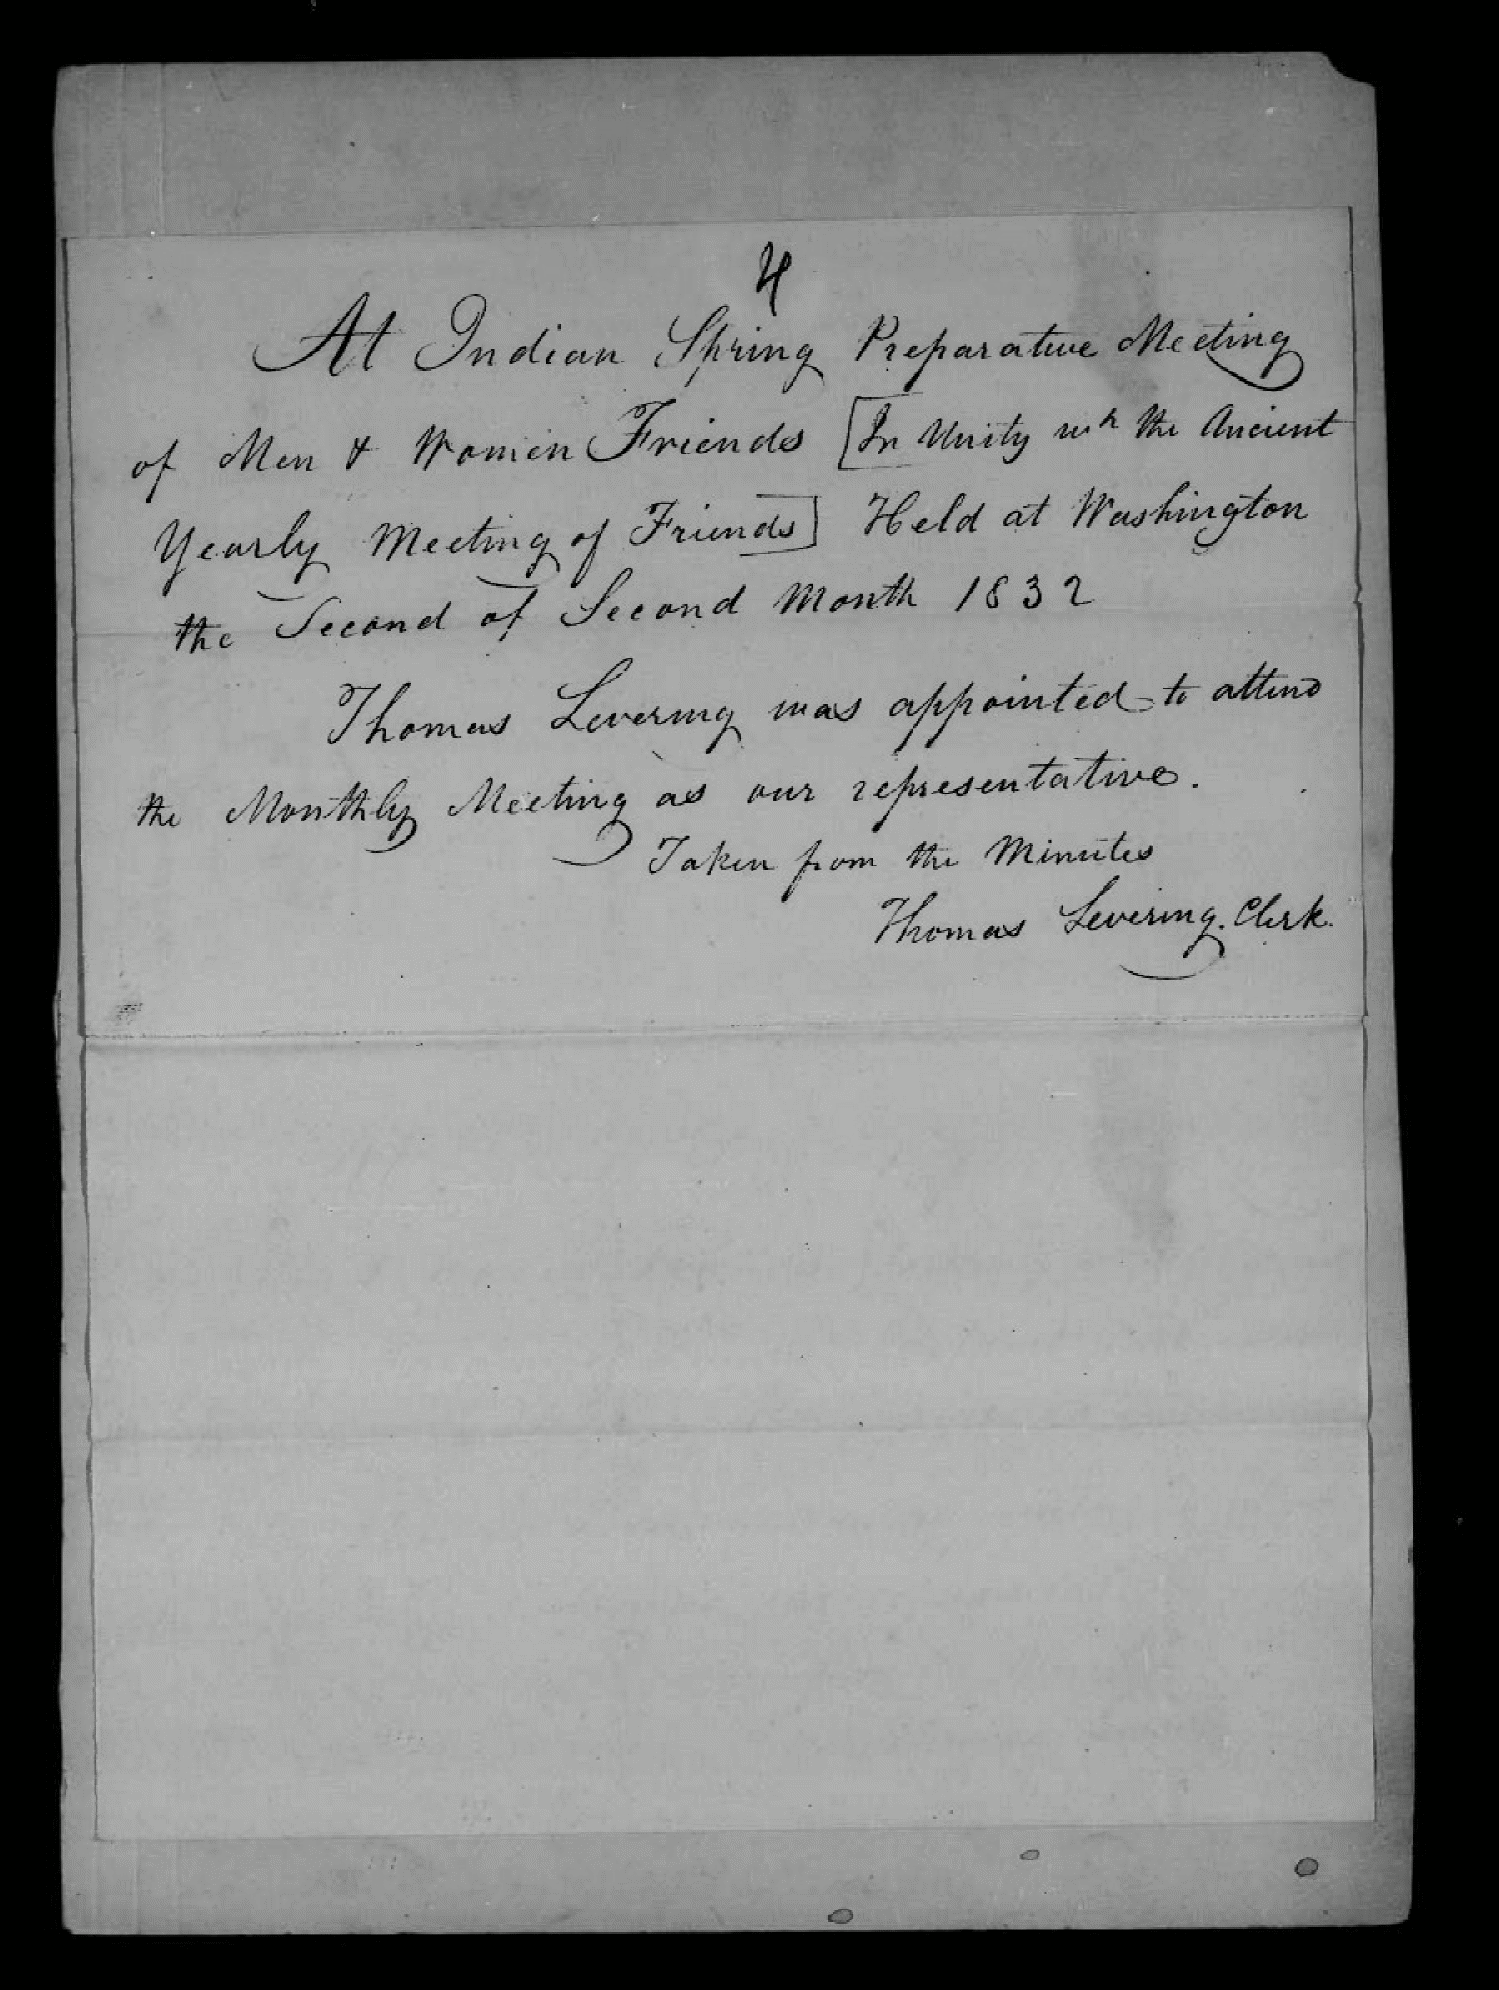 4
At Indian Spring Preparative Meeting
of Men & Women Friends [In Unity wh the Ancient
Yearly Meeting of Friends] Held at Washington
the Second of Second Month 1832
Thomas Levering was appointed to attend
the Monthly Meeting as our representative.
Taken from the Minutes
Thomas Levering. Clerk.